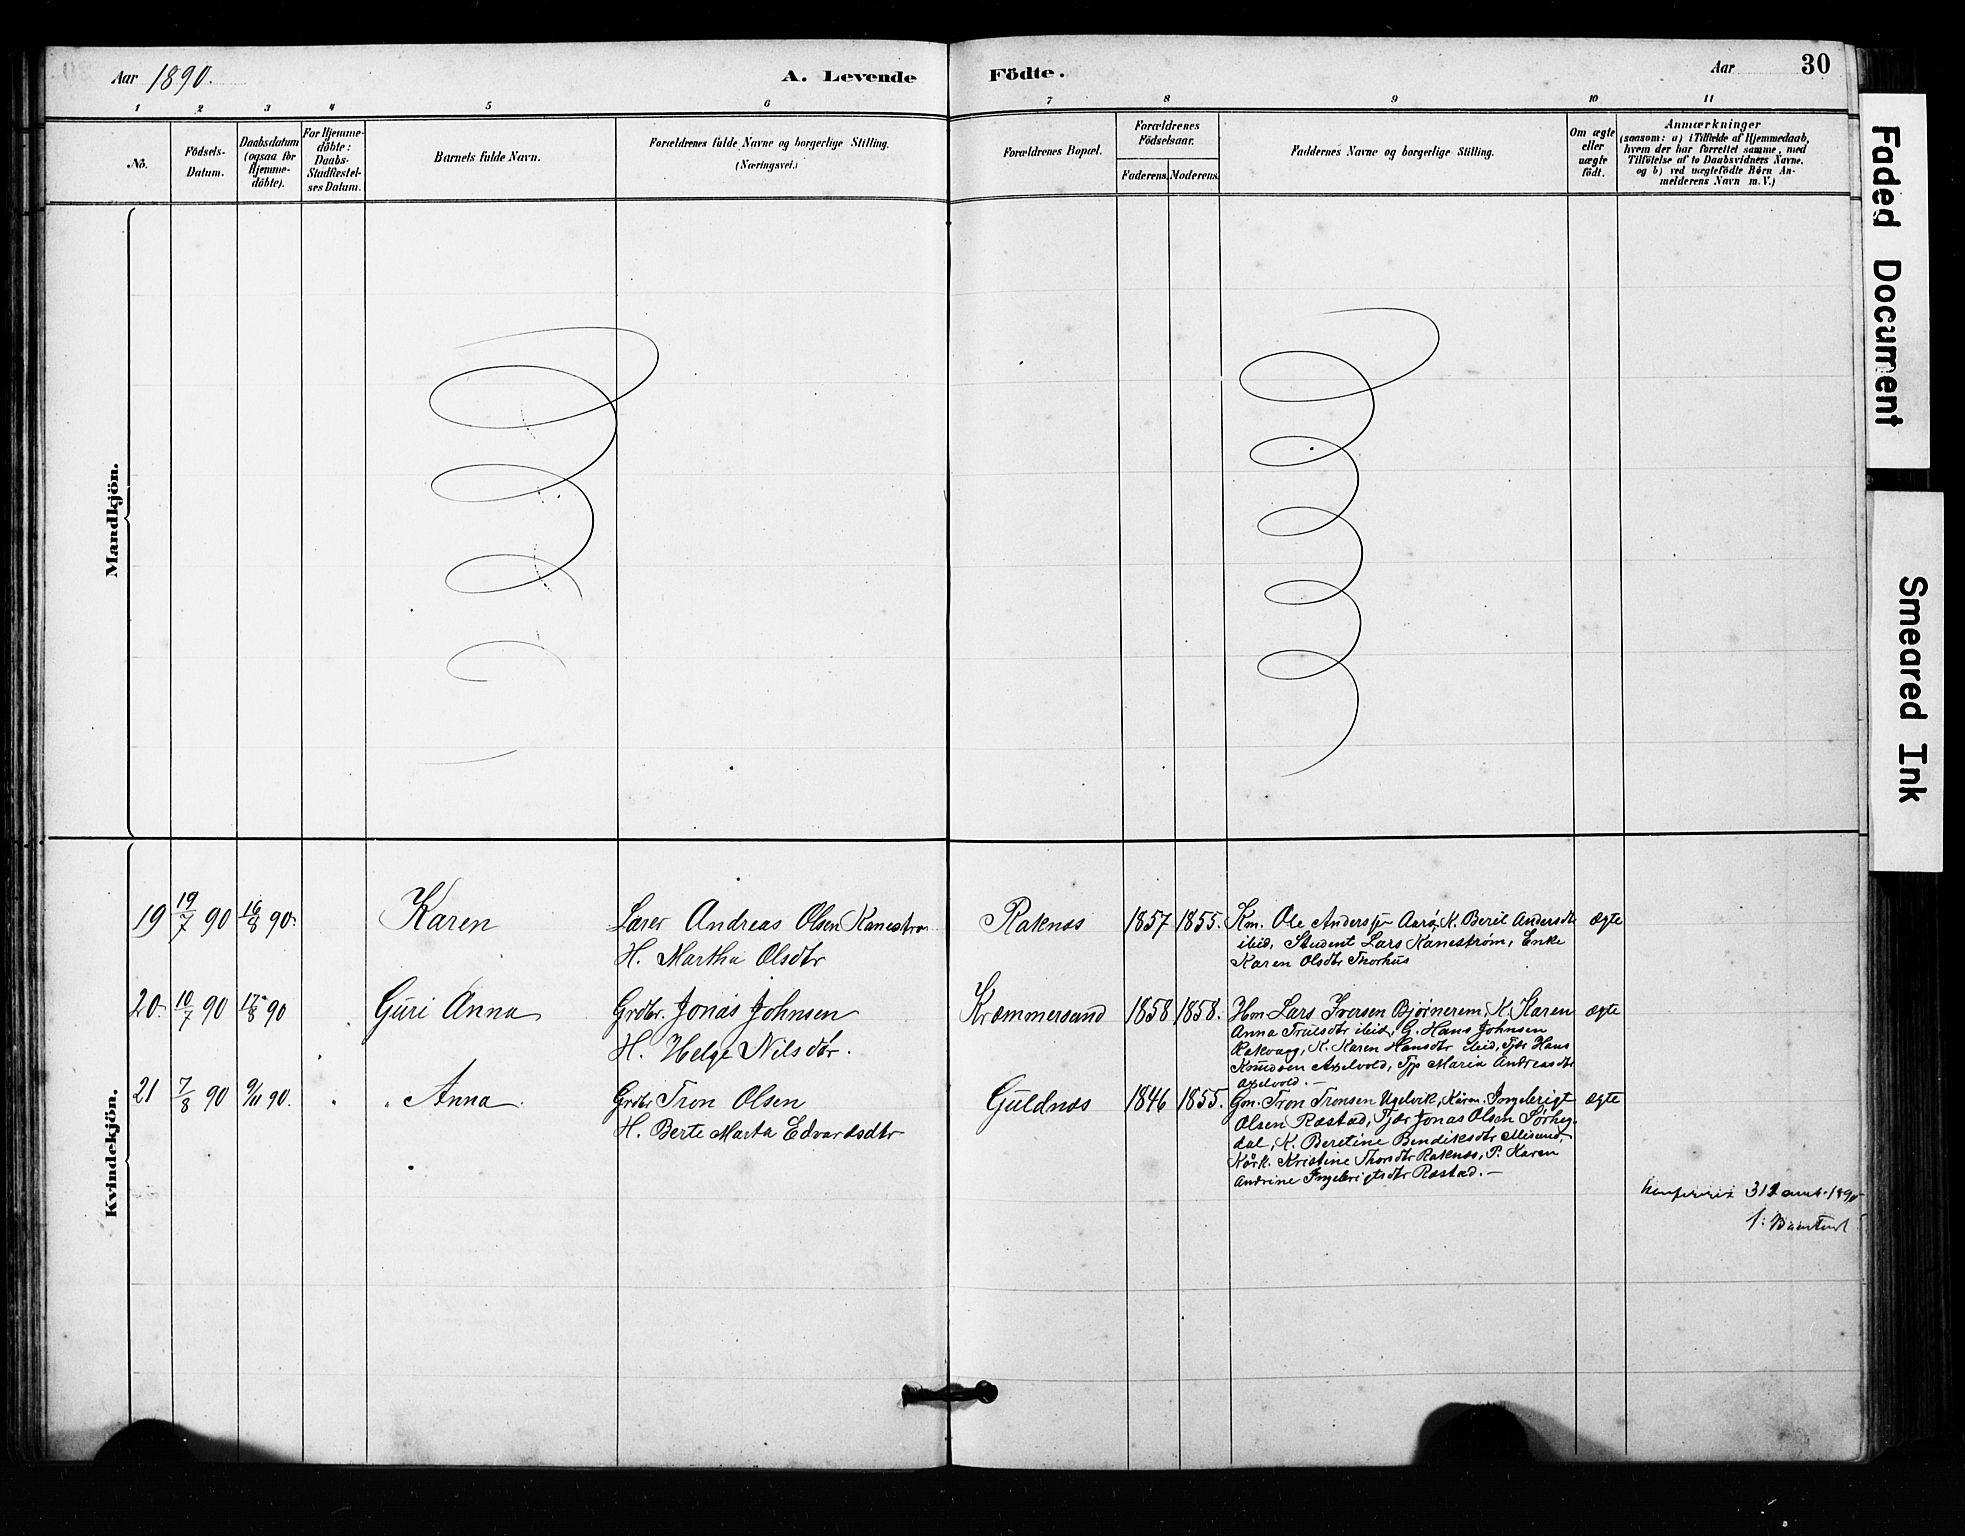 Aar 1890.
A. Levende
Födte.
Aar
30
1 2 3 4 5 6 7 8 9 10 11
No.
Födsels-
Datum.
Daabsdatum
(ogsaa for
Hjemme-
döbte).
For Hjemme-
döbte:
Daabs-
Stadfæstel-
ses Datum.
Barnets fulde Navn.
Forældrenes fulde Navne og borgerlige Stilling.
(Næringsvei.)
Forældrenes Bopæl.
Forældrenes
Födselsaar.
Faderens. Moderens.
Faddernes Navne og borgerlige Stilling.
Om ægte
eller
uægte
födt.
Anmærkninger
(saasom: a) i Tilfælde af Hjemmedaab,
hvem der har forrettet samme, med
Tilföielse af to Daabsvidners Navne.
og b) ved uægtefödte Börn An-
melderens Navn m. V.)
Mandkjön.
Kvindekjön.
19 19/7 90 16/8 90.
Karen
Lærer Andreas Olsen Kanestrøm
H. Martha Olsdtr
Raknæs
1857 1855.
Km. Ole Anderssen Aarø, K. Beril Andersdtr
ibid, Student Lars Kanestrøm, Enke
Karen Olsdtr Thorhus
ægte
20. 10/7 90 17/8 90
Guri Anna
Grdbr. Jonas Johnsen
H. Helge Nilsdtr.
Kræmmersund
1858 1858.
Hm Lars Iversen Bjørnerem, K. Karen
Anna Trulsdtr ibid, G. Hans Johnsen
Rakvaag, K. Karen Hansdtr ibid, Tjdr Hans
Knudsen Axelvold, Tjp Maria Andreasdtr
Axelvold. —
ægte
21 7/8 90 9/11 90.
Anna
Grdbr Tron Olsen
H. Berte Marta Edvardsdtr
Guldnæs
1846 1855.
Gm. Tron Tronsen Ugelvik, Kårm. Ingebrigt
Olsen Røstad, Tjdr Jonas Olsen Sørheg-
dal, K. Beretine Bendiksdtr Misund,
Kårk. Kristine Thorsdtr Raknæs, P. Karen
Andrine Ingebrigtsdtr Røstad. —
ægte
Faded Document
Smeared Ink